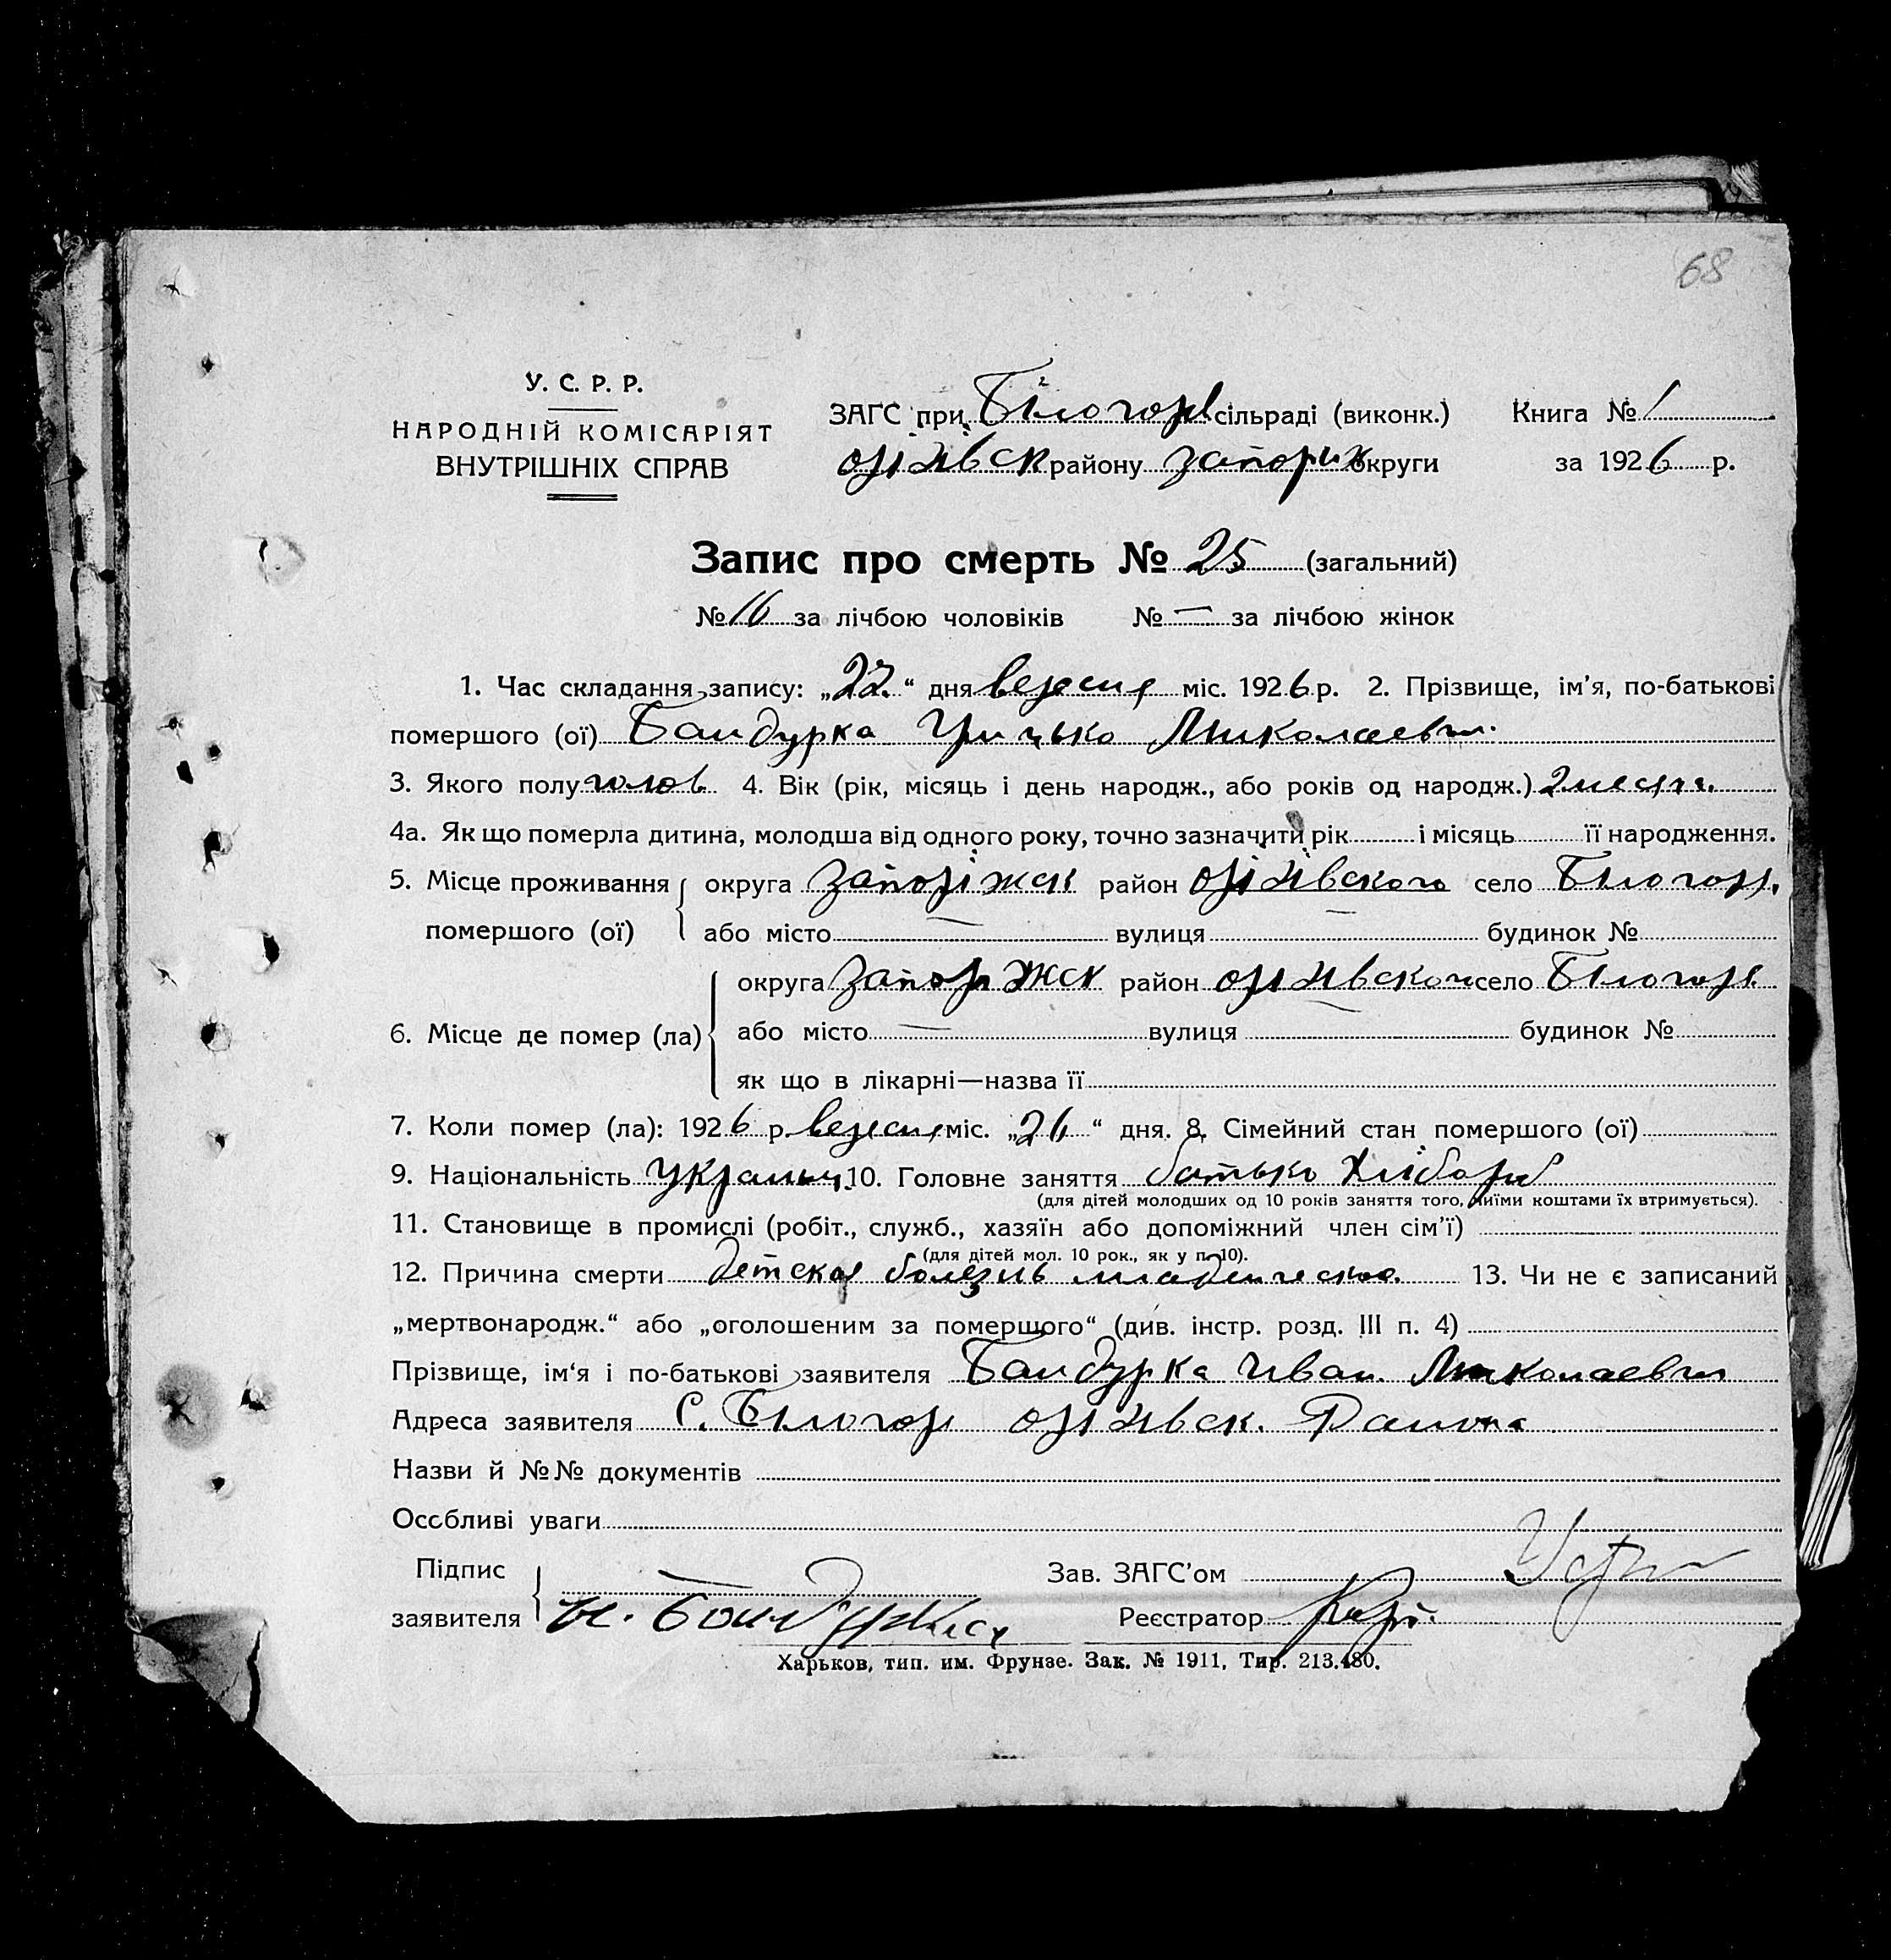 68
У. С. Р. Р.
НАРОДНІЙ КОМІСАРІЯТ
ВНУТРІШНІХ СПРАВ
ЗАГС при Білогор сільраді (виконк.)
оріхівск району запориж округи
Книга № 1
за 1926 р.
Запис про смерть № 25 (загальний)
№ 16 за лічбою чоловіків № — за лічбою жінок
1. Час складання запису: „22“ дня вересня міс. 1926 р. 2. Прізвище, ім'я, по-батькові
помершого (ої) Бандурка Грицько Миколаевич.
3. Якого полу чолов. 4. Вік (рік, місяць і день народж., або років од народж.) 2 месяц.
4а. Як що померла дитина, молодша від одного року, точно зазначити рік і місяць її народження.
5. Місце проживання округа запоріжск район оріхівского село Білогор.
помершого (ої) або місто — вулиця — будинок №
округа запоріжск район оріхівского село Білогор.
6. Місце де помер (ла) або місто — вулиця — будинок №
як що в лікарні—назва її
7. Коли помер (ла): 1926 р. вересня міс. „21“ дня. 8. Сімейний стан помершого (ої)
9. Національність українц. 10. Головне заняття батько хлібороб
(для дітей молодших од 10 років заняття того, чиїми коштами їх втримується).
11. Становище в промислі (робіт., служб., хазяїн або допоміжний член сім'ї)
(для дітей мол. 10 рок., як у п. 10).
12. Причина смерти детская болезнь младенческая. 13. Чи не є записаний
„мертвонародж.“ або „оголошеним за померщого“ (див. інстр. розд. III п. 4)
Прізвище, ім‘я і по-батькові заявителя Бандурка Иван Миколаевич
Адреса заявителя С. Білогор оріхівск. Района
Назви й №№ документів
Особливі уваги
Підпис
заявителя И. Бандурка
Зав. ЗАГС'ом
Реєстратор
Харьков, тип. им. Фрунзе. Зак. № 1911, Тир. 213.480.